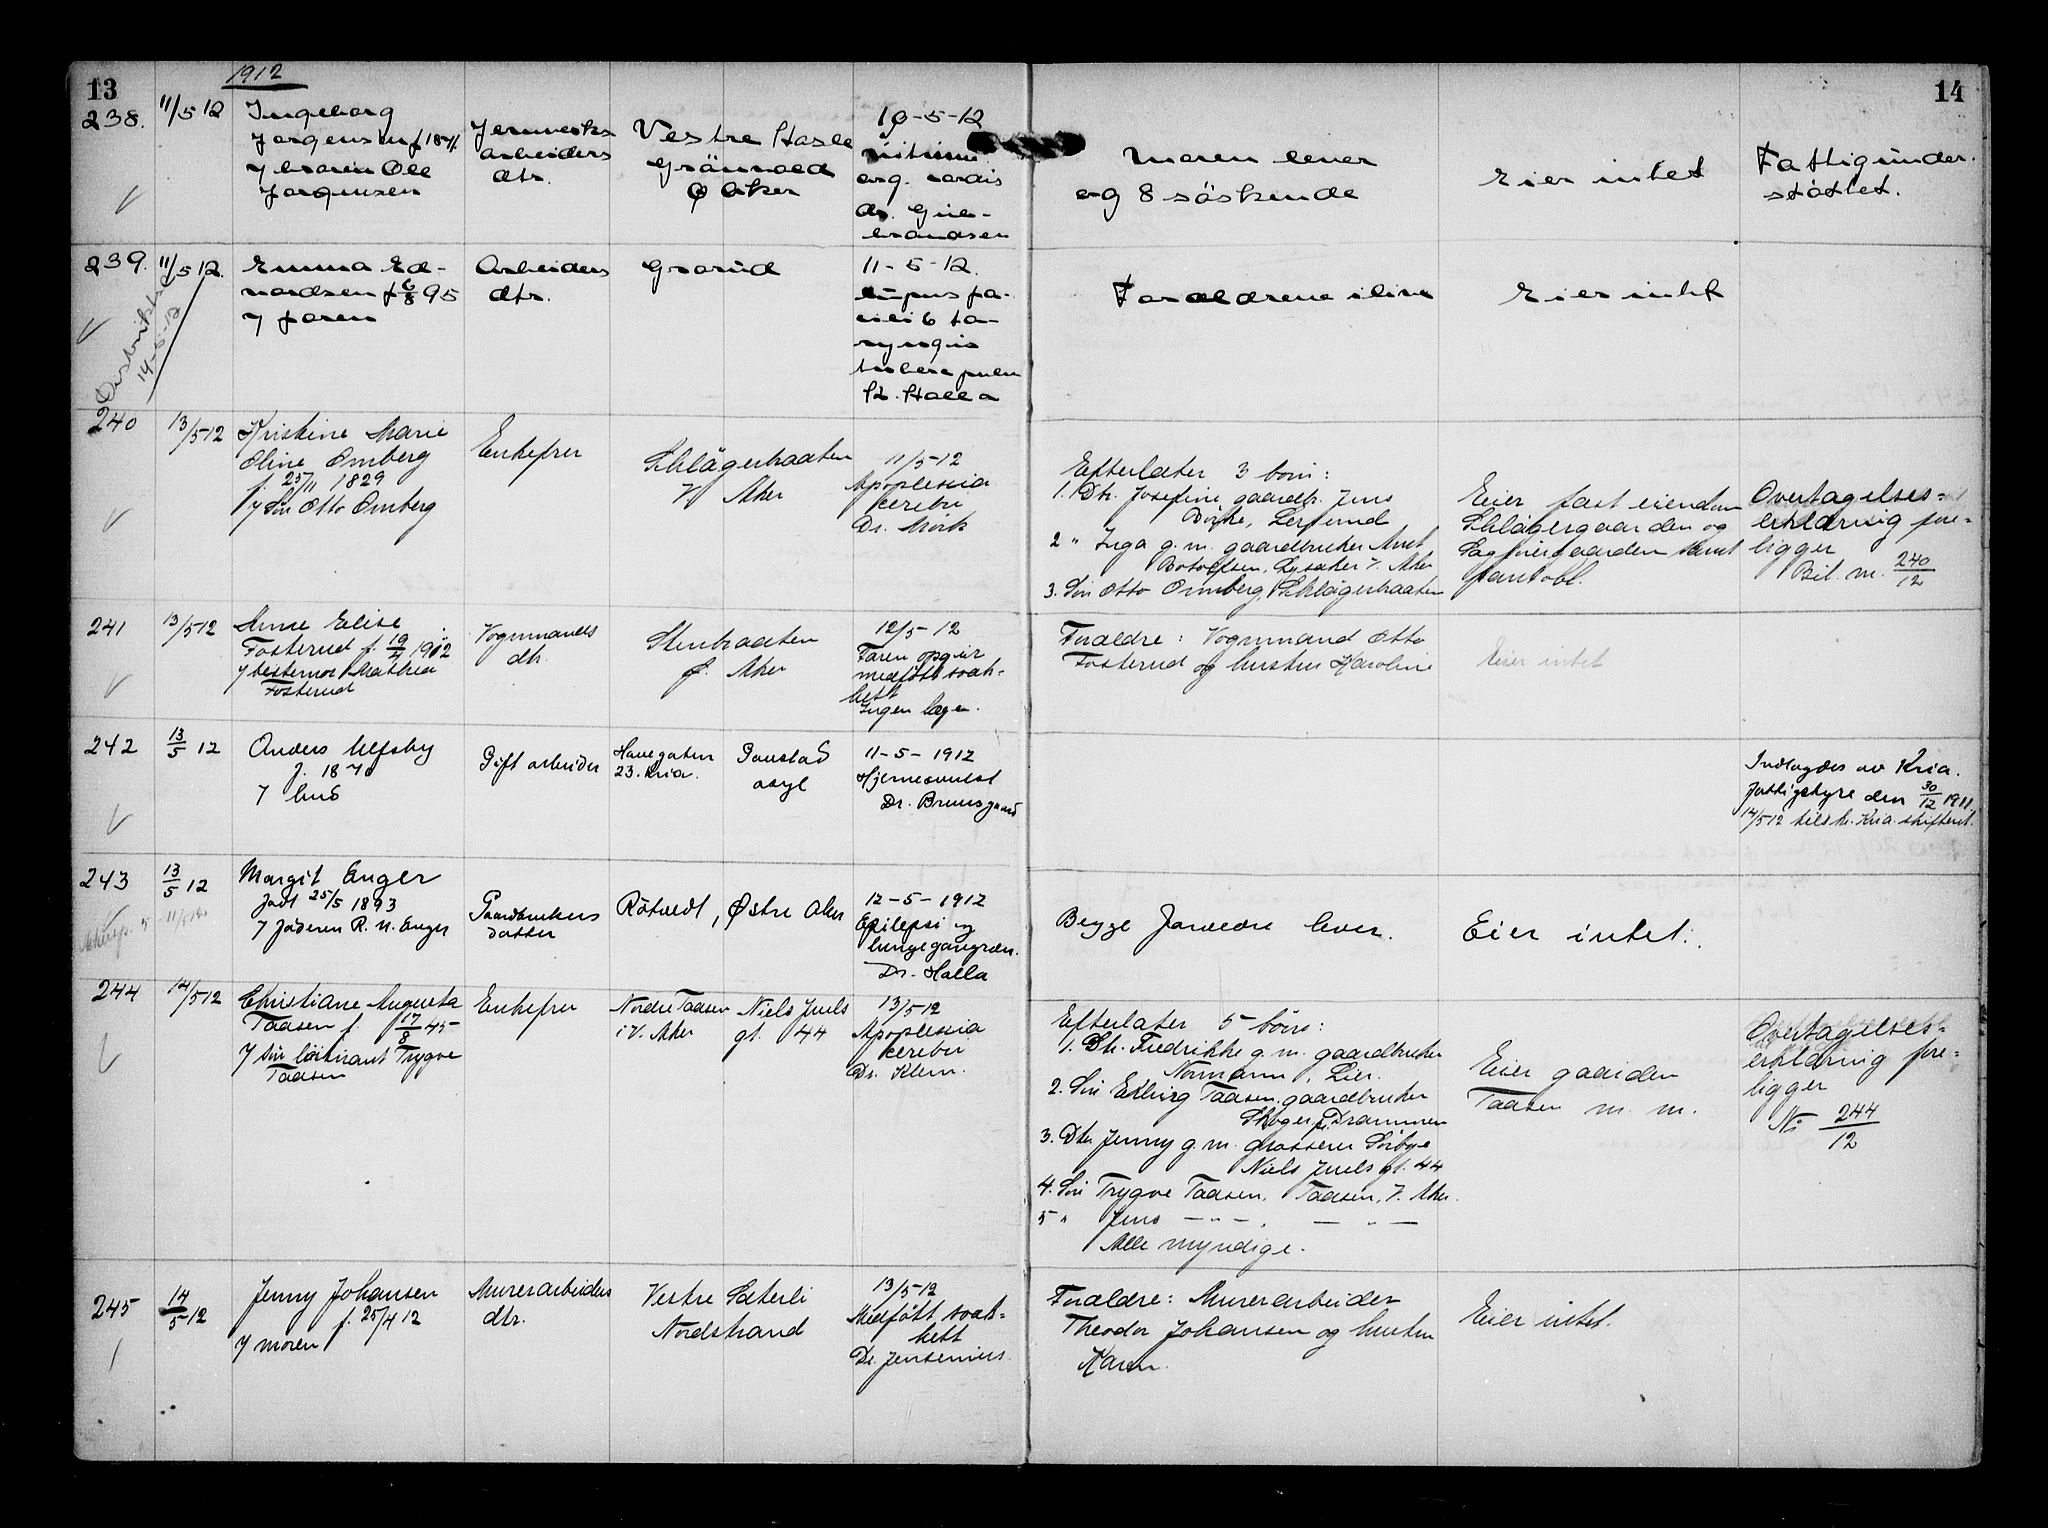 13
1912
14
238.
11/5 12
Ingeborg
Jørgensen f 1871.
/ broren Ole
Jørgensen
Jernverks
arbeiders
dtr.
Vestre Hasle
Grönvold
Ø Aker
10-5-12
vitium
org. cordis
dr. Gul-
brandsen
Moren lever
og 8 söskende
Eier intet
Fattigunder-
støttet.
239.
11/5 12.
Emma Ed-
vardsen f 6/8 95
/ faren
Arbeiders
dtr.
Grorud
11-5-12.
lupus fa-
ciei & la-
ryngis
tubera pulm
St. Halla
Forældrene ilive
Eier intet
14-5-12
240
13/5 12
Kristine Marie
Oline Omberg
f. 25/11 1829
/ Sön Otto Omberg
Enkefru
Schlägerbraaten
V Aker
11/5-12
Apoplexia
cerebri
Dr. Mörk
Efterlater 3 börn:
1. Dtr. Josefine gaardbr. Jens
Börke, Lersund
2 " Inga g. m. gaardbruker Arnt
Botolfsen, Lysaker V. Aker
3. Sön Otto Omberg, Schlägerbraaten
Eier fast eiendom
Schlägergaarden og
Sagfoiergaarden samt
pantobl.
Overtagelses-
erklæring fore-
ligger
Bil. m. 240/12
241
13/5 12
Anne Elise
Fosterud f. 19/4 1912
/ bestemor Mathea
Fosterud
Vognmands
dtr.
Stenbraaten
Ø. Aker
12/5-12
Faren opgir
medfött svak-
het
Ingen læge.
Forældre: Vognmand Otto
Fosterud og hustru Karoline
Eier intet
242
13/5 12
Anders Ulfsby
f. 1870
/ bud
Gift arbeider
Havegaten
23. Kria.
Gaustad
asyl
11-5-1912
Hjernesvulst
Dr. Bruusgaard
Indlagdes av Kria.
fattigstyre den 30/12 1911.
14/5 12 tilskr. Kria. skifteret.
243
13/5 12
Margit Enger
født 25/5 1893
/ faderen R. N. Enger
Gaardbrukers
datter
Rötvedt, Østre Aker
12-5-1912
Epilepsi og
lungegangræn.
Dr. Halla
Begge foreldre lever.
Eier intet.
244
14/5 12
Christiane Augusta
Taasen f. 17/8 45
/ sön löitnant Trygve
Taasen
Enkefru
Nordre Taasen
i V. Aker
Niels Juels
gt. 44
13/5 12
Apoplexia
cerebri
Dr. Klem.
Efterlater 5 börn:
1. Dtr. Fredrikke g. m. gaardbruker
Normann, Lier.
2. Sön Edling Taasen, gaardbruker
Skoger pr. Drammen
3. Dtr. Jenny g. m. grosserer Sörbye
Niels Juels gt. 44
4. Sön Trygve Taasen, Taasen, V. Aker.
5 " Jens — " — , — " —
Alle myndige.
Eier gaarden
Taasen m. m.
Overtagelses-
erklæring fore-
ligger
No 244/12
245
14/5 12
Jenny Johansen
f. 25/4 12
/ moren
Murerarbeiders
dtr.
Vestre Sæterli
Nordstrand
13/5-12
Medfött svak-
het
Dr. Jensenius.
Forældre: Murerarbeider
Theodor Johansen og hustru
Karen.
Eier intet.